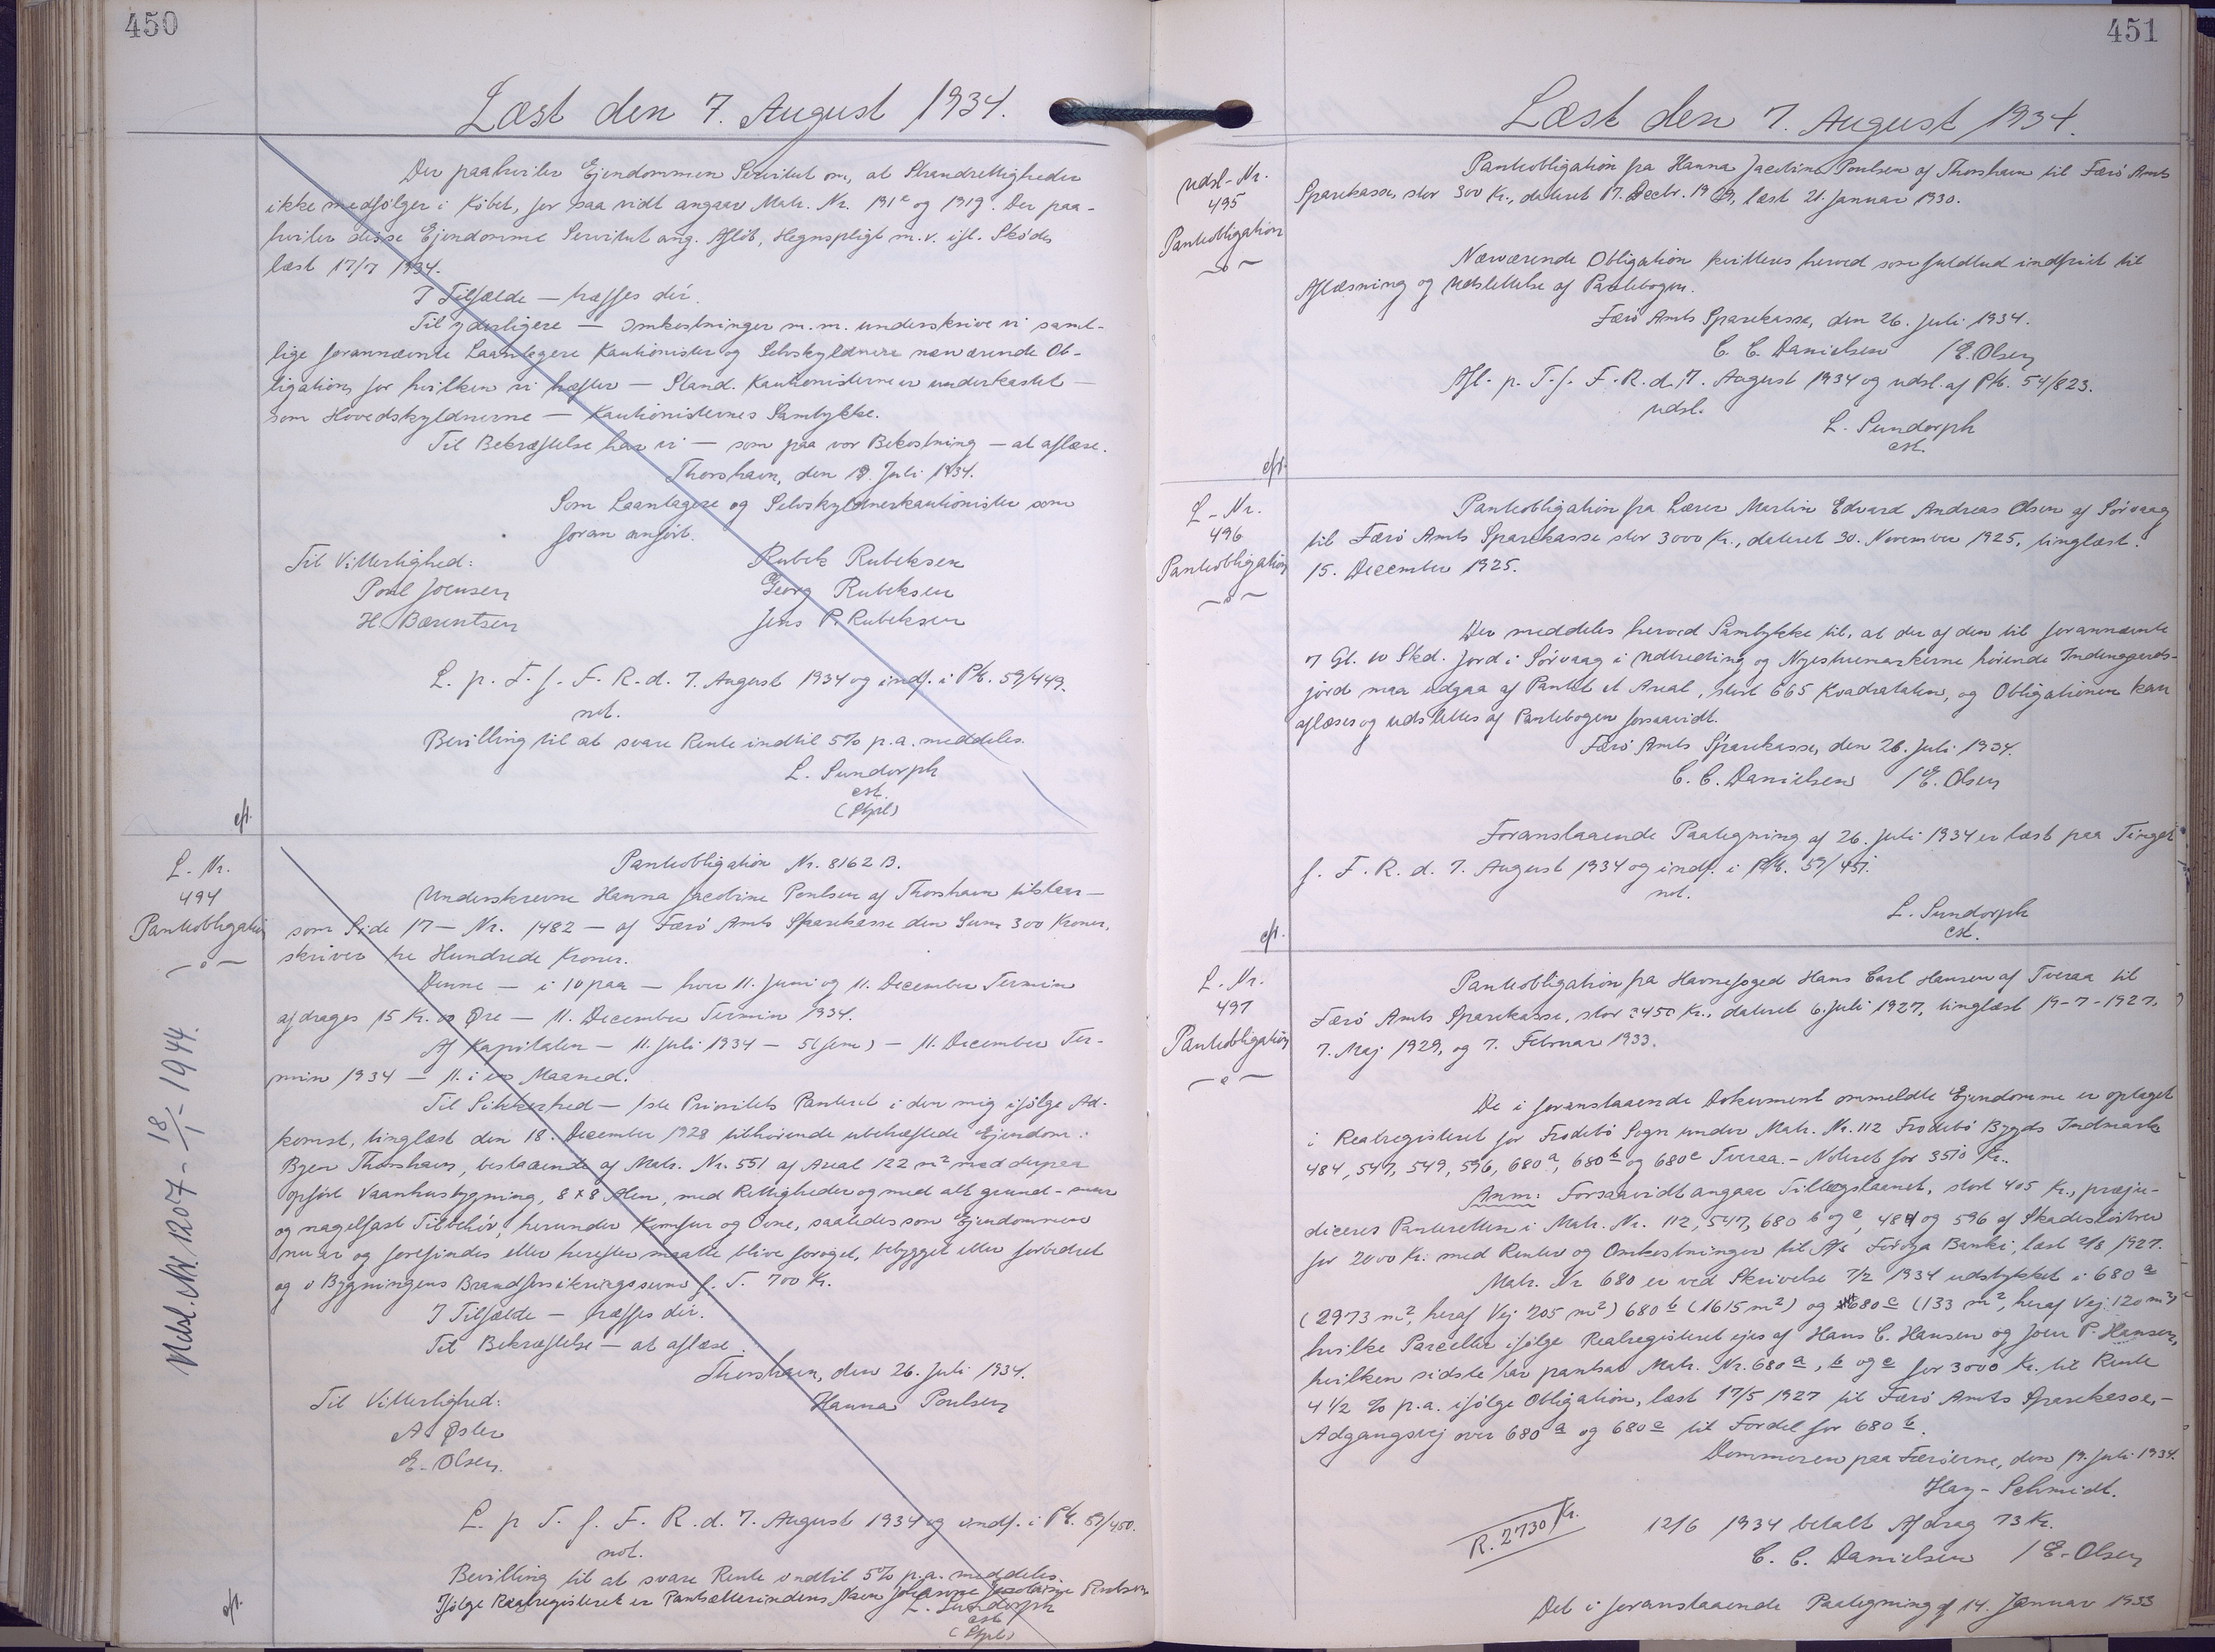 450
Læst den 7. August 1934.
Der paahviler Ejendommen Servitut om, at Strandrettigheder
ikke medfølger i Købet, for saa vidt angaar Matr. Nr. 191c og 191g. Der paa-
hviler disse Ejendomme Servitut ang. Afløb, Hegnspligt m.v. ifl. Skøde
læst 17/7 1934.
I Tilfælde — træffes dér.
Til yderligere — Omkostninger m.m. underskrive vi samt-
lige forannævnte Laantagere Kautionister og Selvskyldnere nærværende Ob-
ligation, for hvilken vi hæfter — Stand. Kautionisterne er underkastet —
som Hovedskyldnerne — Kautionisternes Samtykke.
Til Bekræftelse har vi — som paa vor Bekostning — at aflæse.
Thorshavn, den 18. Juli 1934.
Som Laantagere og Selvskyldnerkautionister som
foran anført.
Til Vitterlighed: Rubek Rubeksen
Poul Joensen Georg Rubeksen
H. Bærentsen Jens P. Rubeksen
L. p. T. f. F. R. d. 7. August 1934 og indf. i Pb. 59/449.
not.
Bevilling til at svare Rente indtil 5% p.a. meddeles.
L. Sundorph
cst.
(Stpl)
eft.
L. Nr.
494
Pantobligation
—o—
Pantobligation Nr. 8162 B.
Underskrevne Hanna Jacobine Poulsen af Thorshavn tilstaar —
som Side 17 — Nr. 1482 — af Færø Amts Sparekasse den Sum 300 Kroner,
skriver tre Hundrede Kroner.
Denne — i 10 paa — hver 11. Juni og 11. December Termin
afdrages 15 Kr. 00 Øre — 11. December Termin 1934.
Af Kapitalen — 11. Juli 1934 — 5 (fem) — 11. December Ter-
min 1934 — 11. i en Maaned.
Til Sikkerhed — 1ste Prioritets Panteret i den mig ifølge Ad-
komst, tinglæst den 18. December 1928 tilhørende ubehæftede Ejendom:
Byen Thorshavn, bestaaende af Matr. Nr. 551 af Areal 122 m² med derpaa
opført Vaanhusbygning, 8 x 8 Alen, med Rettigheder og med alt grund- mur
og nagelfast Tilbehør, herunder Komfur og Ovne, saaledes som Ejendommen
nu er og forefindes eller herefter maatte blive forøget, bebygget eller forbedret
og i Bygningens Brandforsikringssum f. T. 700 Kr.
I Tilfælde — træffes dér.
Til Bekræftelse — at aflæse.
Thorshavn, den 26. Juli 1934.
Til Vitterlighed: Hanna Poulsen
A. Øster
E. Olsen.
L. p T. f. F. R. d. 7. August 1934 og indf. i Pb. 59/450.
not.
Bevilling til at svare Rente indtil 5% p.a. meddeles.
Ifølge Realregisteret er Pantsætterindens Navn Johanne Jacobine Poulsen
L. Sundorph
cst.
(Stpl)
eft.
Udsl. Nr. 1207 - 18/1 - 1944.
451
Læst den 7. August 1934.
Udsl-Nr.
495
Pantobligation
—o—
Pantobligation fra Hanna Jacobine Poulsen af Thorshavn til Færø Amts
Sparekasse, stor 300 Kr., dateret 17. Decbr. 1929, læst 21. Januar 1930.
Nærværende Obligation kvitteres herved som fuldtud indfriet til
Aflæsning og Udslettelse af Pantebogen.
Færø Amts Sparekasse, den 26. Juli 1934.
C. C. Danielsen /E. Olsen
Afl. p. T. f. F. R. d. 7. August 1934 og udsl. af Pb. 54/823.
udsl.
L. Sundorph
cst.
eft.
L-Nr.
496
Pantobligation
—o—
Pantobligation fra Lærer Martin Edvard Andreas Olsen af Sørvaag
til Færø Amts Sparekasse stor 3000 Kr., dateret 30. November 1925, tinglæst
15. December 1925.
Der meddeles herved Samtykke til, at der af den til forannævnte
7 Gl. 10 Skd. Jord i Sørvaag i Udtræding og Nyestuemarkerne hørende Indengærds-
jord maa udgaa af Pantet et Areal, stort 665 Kvadratalen, og Obligationen kan
aflæses og udslettes af Pantebogen forsaavidt.
Færø Amts Sparekasse, den 26. Juli 1934.
C. C. Danielsen /E. Olsen
Foranstaaende Paategning af 26. Juli 1934 er læst paa Tinget
f. F. R. d. 7. August 1934 og indf. i Pb. 59/451.
not.
L. Sundorph
cst.
eft.
L. Nr.
497
Pantobligation
—o—
Pantobligation fra Havnefoged Hans Carl Hansen af Tveraa til
Færø Amts Sparekasse, stor 3450 Kr., dateret 6. Juli 1927, tinglæst 19-7-1927,
7. Maj 1929, og 7. Februar 1933.
De i foranstaaende Dokument ommeldte Ejendomme er optaget
i Realregisteret for Frodebø Sogn under Matr. Nr. 112 Frodebø Bygds Indmark
484, 547, 549, 596, 680a, 680b og 680c Tveraa. - Noteret for 3510 Kr..
Anm: Forsaavidt angaar Tillægslaanet, stort 405 Kr., præju-
diceres Panteretten i Matr. Nr. 112, 547, 680 b og c, 484 og 596 af Skadesløsbrev
for 2000 Kr. med Renter og Omkostninger til A/s Føroya Banki, læst 2/8 1927.
Matr. Nr 680 er ved Skrivelse 7/2 1934 udstykket i 680 a
(2973 m², heraf Vej 205 m²) 680 b (1615 m²) og 680 c (133 m², heraf Vej 120 m²)
hvilke Parceller ifølge Realregisteret ejes af Hans C. Hansen og Joen P. Hansen,
hvilken sidste har pantsat Matr. Nr. 680 a, b og c for 3000 Kr. til Rente
4 1/2 % p.a. ifølge Obligation, læst 17/5 1927 til Færø Amts Sparekasse,-
Adgangsvej over 680 a og 680 c til Fordel for 680 b.
Dommeren paa Færøerne, den 19. Juli 1934.
Hay-Schmidt.
R. 2730 Kr.
12/6 1934 betalt Afdrag 73 Kr.
C. C. Danielsen /E. Olsen
Det i foranstaaende Paategning af 14. Januar 1933